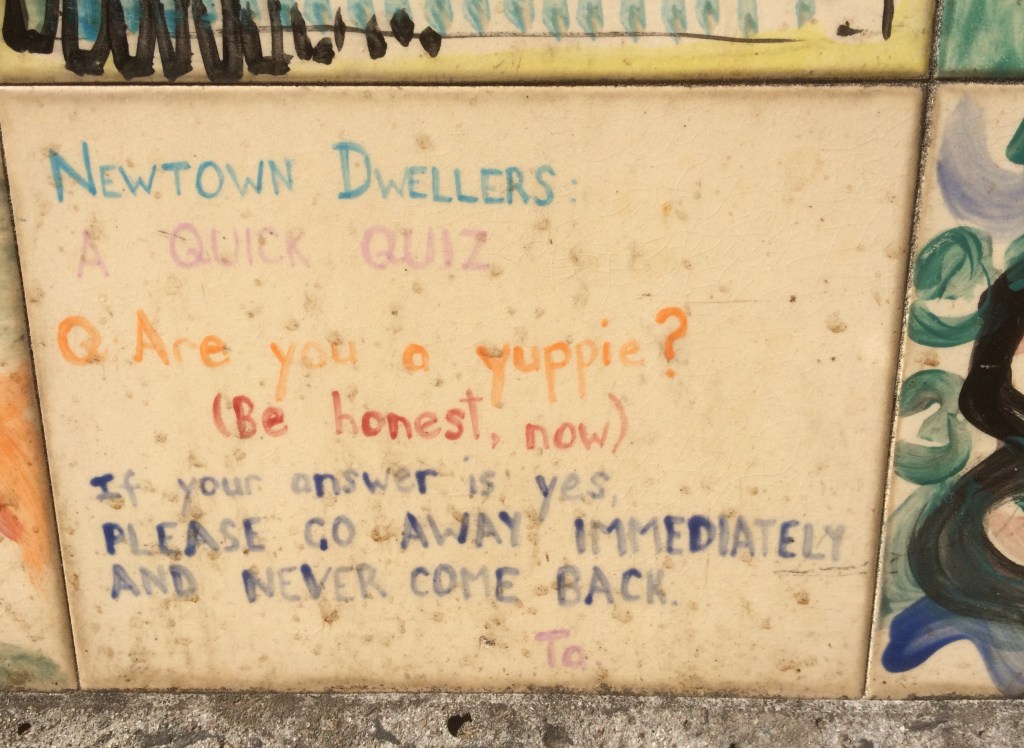 NEWTOWN DWELLERS:
A QUICK QUIZ
Q Are you a yuppie?
(Be honest, now)
If your answer is yes,
PLEASE GO AWAY IMMEDIATELY
AND NEVER COME BACK.
Ta.